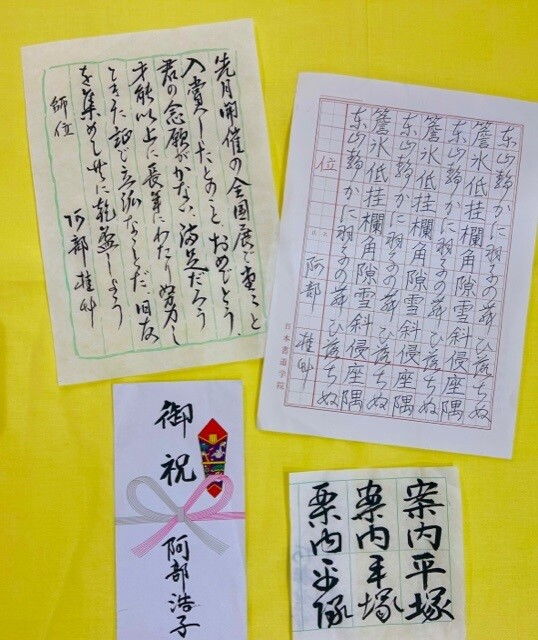 先月開催の全国展で美ごと
入賞したとのこと おめでとう。
君の念願がかない満足だろう
才能以上に長年にわたり努力し
てきた証で立派なことだ 旧友
を集めし共に乾盃しよう
阿部桂邨
師位
东山静かに羽子の舞ひ落ちぬ
簷氷低挂欄角隙雪斜侵座隅
东山静かに羽子の舞ひ落ちぬ
簷氷低挂欄角隙雪斜侵座隅
东山静かに羽子の舞ひ落ちぬ
簷氷低挂欄角隙雪斜侵座隅
东山静かに羽子の舞ひ落ちぬ
位 阿部 桂邨
日本書道学院
御祝
阿部浩子
案内平塚
案内平塚
案内平塚